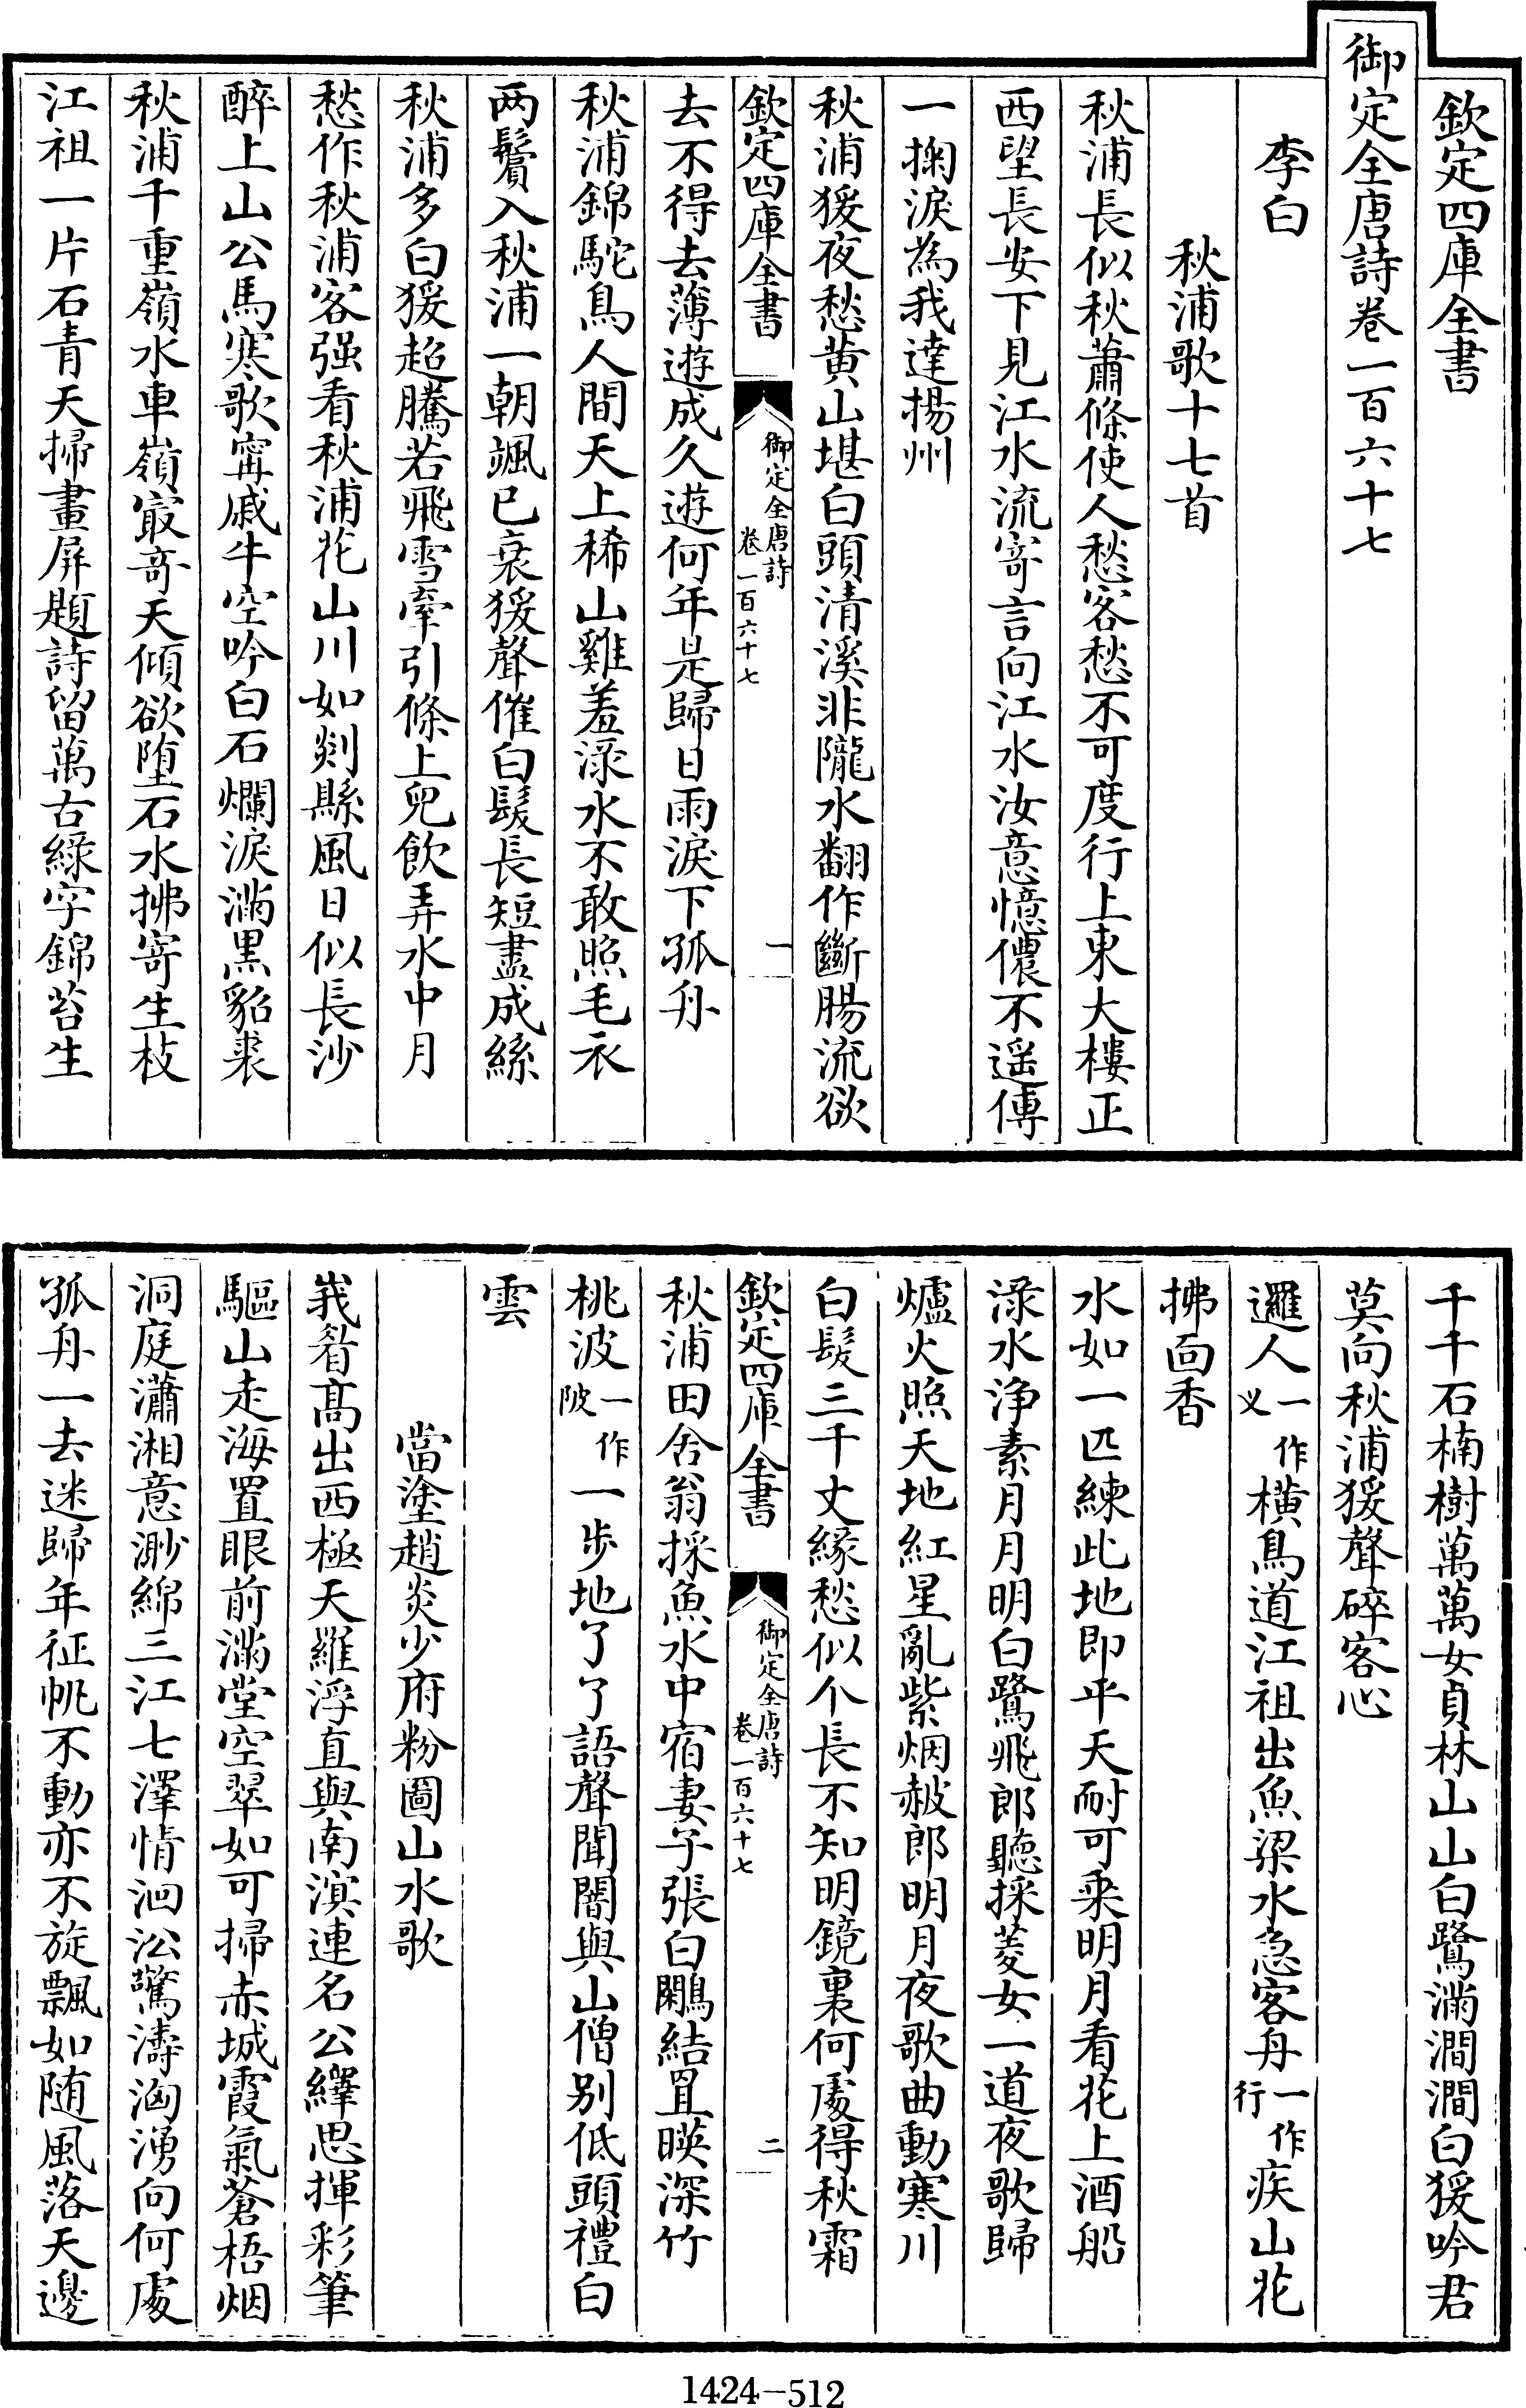 欽定四庫全書
御定全唐詩卷一百六十七
李白
秋浦歌十七首
秋浦長似秋蕭條使人愁客愁不可度行上東大樓正
西望長安下見江水流寄言向江水汝意憶儂不遥傳
一掬淚為我達揚州
秋浦猨夜愁黄山堪白頭清溪非隴水翻作斷腸流欲
欽定四庫全書
御定全唐詩
卷一百六十七
一
去不得去薄遊成久遊何年是歸日雨淚下孤舟
秋浦錦駝鳥人間天上稀山雞羞渌水不敢照毛衣
两鬢入秋浦一朝颯已衰猨聲催白髮長短盡成絲
秋浦多白猨超騰若飛雪牽引條上兒飲弄水中月
愁作秋浦客强看秋浦花山川如剡縣風日似長沙
醉上山公馬寒歌甯戚牛空吟白石爛淚滿黒貂裘
秋浦千重嶺水車嶺㝡竒天傾欲墮石水拂寄生枝
江祖一片石青天掃畫屏題詩留萬古緑字錦苔生
千千石楠樹萬萬女貞林山山白鷺滿澗澗白猨吟君
莫向秋浦猨聲碎客心
邏人一作义横鳥道江祖出魚梁水急客舟一作行疾山花
拂面香
水如一匹練此地即平天耐可乗明月看花上酒船
渌水浄素月月明白鷺飛郎聽採菱女一道夜歌歸
爐火照天地紅星亂紫烟赧郎明月夜歌曲動寒川
白髮三千丈緣愁似个長不知明鏡裏何處得秋霜
欽定四庫全書
御定全唐詩
卷一百六十七
二
秋浦田舍翁採魚水中宿妻子張白鷴結罝暎深竹
桃波一作陂一步地了了語聲聞闇與山僧别低頭禮白
雲
當塗趙炎少府粉圖山水歌
峩睂髙出西極天羅浮直與南溟連名公繹思揮彩筆
驅山走海置眼前滿堂空翠如可掃赤城霞氣蒼梧烟
洞庭瀟湘意渺綿三江七澤情洄沿驚濤洶湧向何處
孤舟一去迷歸年征帆不動亦不旋飄如随風落天邊
1424-512